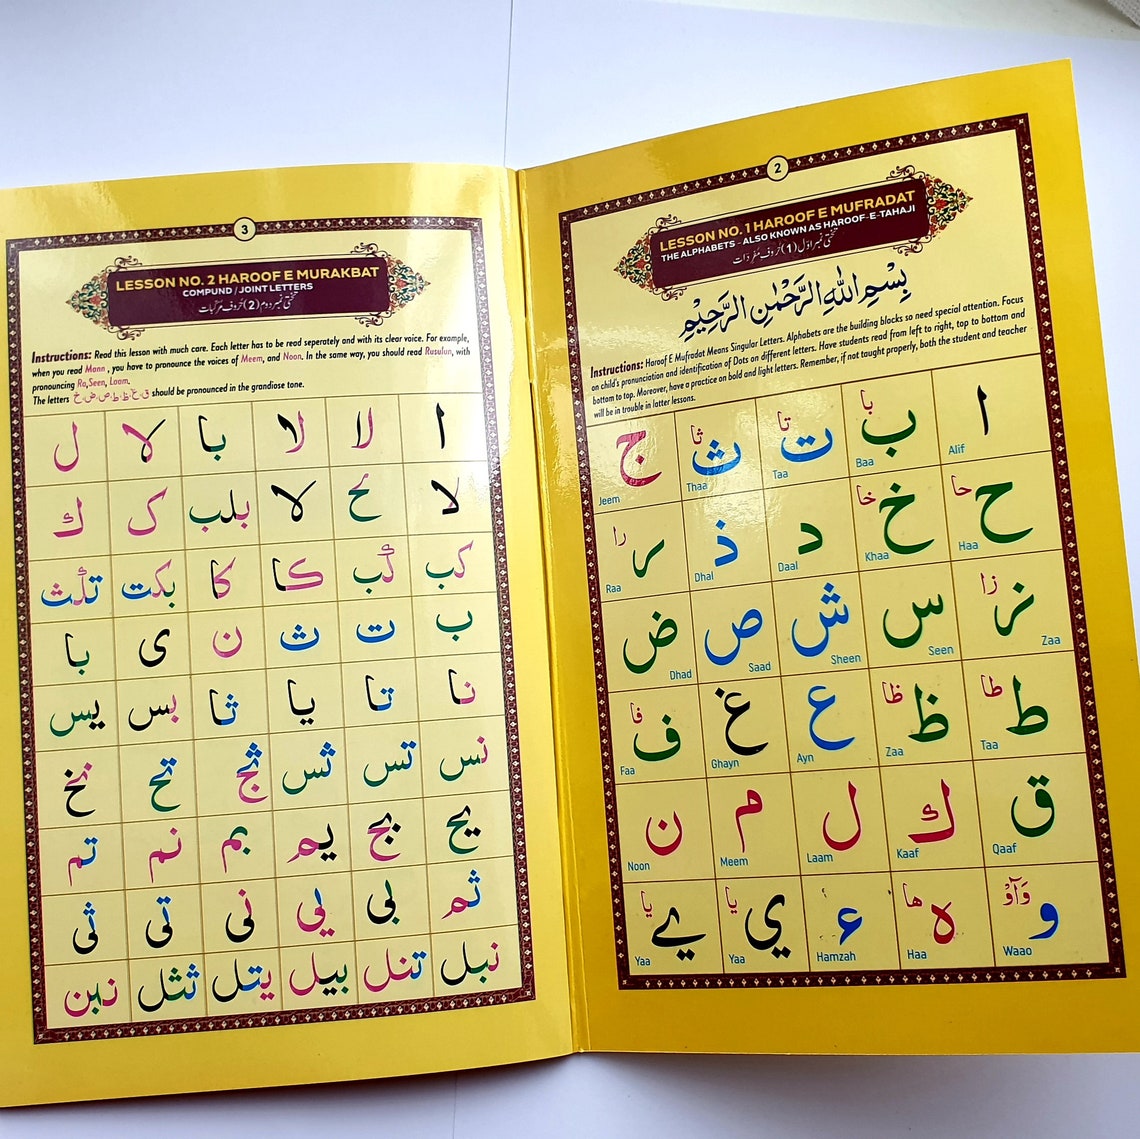 2
LESSON NO. 1 HAROOF E MUFRADAT
THE ALPHABETS - ALSO KNOWN AS HAROOF-E-TAHAJI
تختی نمبر اوّل (1) حُروف مُفرَدَات
بِسْمِ اللهِ الرَّحْمٰنِ الرَّحِيْمِ
Instructions: Haroof E Mufradat Means Singular Letters. Alphabets are the building blocks so need special attention. Focus
on child's pronunciation and identification of Dots on different letters. Have students read from left to right, top to bottom and
bottom to top. Moreover, have a practice on bold and light letters. Remember, if not taught properly, both the student and teacher
will be in trouble in latter lessons.
ا ب با ت تا ث ثا ج
Alif Baa Taa Thaa Jeem
ح حا خ خا د ذ ر را
Haa Khaa Daal Dhal Raa
ز زا س ش ص ض
Zaa Seen Sheen Saad Dhad
ط طا ظ ظا ع غ ف فا
Taa Zaa Ayn Ghayn Faa
ق ك ل م ن
Qaaf Kaaf Laam Meem Noon
و وَآوْ ه ها ء ي يا ے يا
Waao Haa Hamzah Yaa Yaa
3
LESSON NO. 2 HAROOF E MURAKBAT
COMPUND / JOINT LETTERS
تختی نمبر دوم (2) حُروف مرکّبات
Instructions: Read this lesson with much care. Each letter has to be read seperately and with its clear voice. For example,
when you read Mann , you have to pronounce the voices of Meem, and Noon. In the same way, you should read Rusulun, with
pronouncing Ra,Seen, Laam.
The letters خ،ص،ض،ط،ظ،غ،ق should be pronounced in the grandiose tone.
ا لا لا با لا ل
لا ح لا بلب ک ك
كب كب كا كا بكت تلث
ب ت ث ن ی با
نا تا يا ثا بس يس
نس تس ثس ثج تح نخ
يح بج يم بم نم تم
ثم بی يی نی تی ثی
نبل تنل بيل يتل ثثل نبن